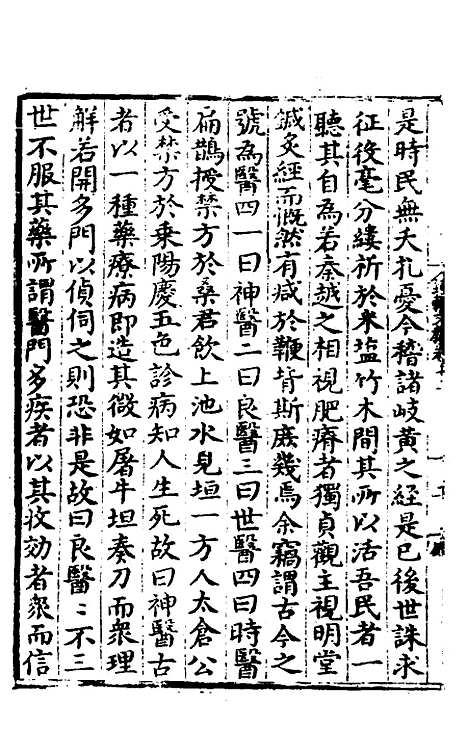 是時民無夭札憂今稽諸岐黃之經是已後世誅求
征役毫分縷析於米塩竹木間其所以活吾民者一
聽其自為若秦越之相視肥瘠者獨貞觀主視明堂
鍼灸經而慨然有感於鞭背斯庶幾焉余竊謂古今之
號為醫四一曰神醫二曰良醫三曰世醫四曰時醫
扁鵲授禁方於桑君飲上池水見垣一方人太倉公
受禁方於乗陽慶五色診病知人生死故曰神醫古
者以一種藥療病即造其微如屠牛坦奏刀而衆理
觧若開多門以偵伺之則恐非是故曰良醫〻不三
世不服其藥所謂醫門多疾者以其收効者衆而信